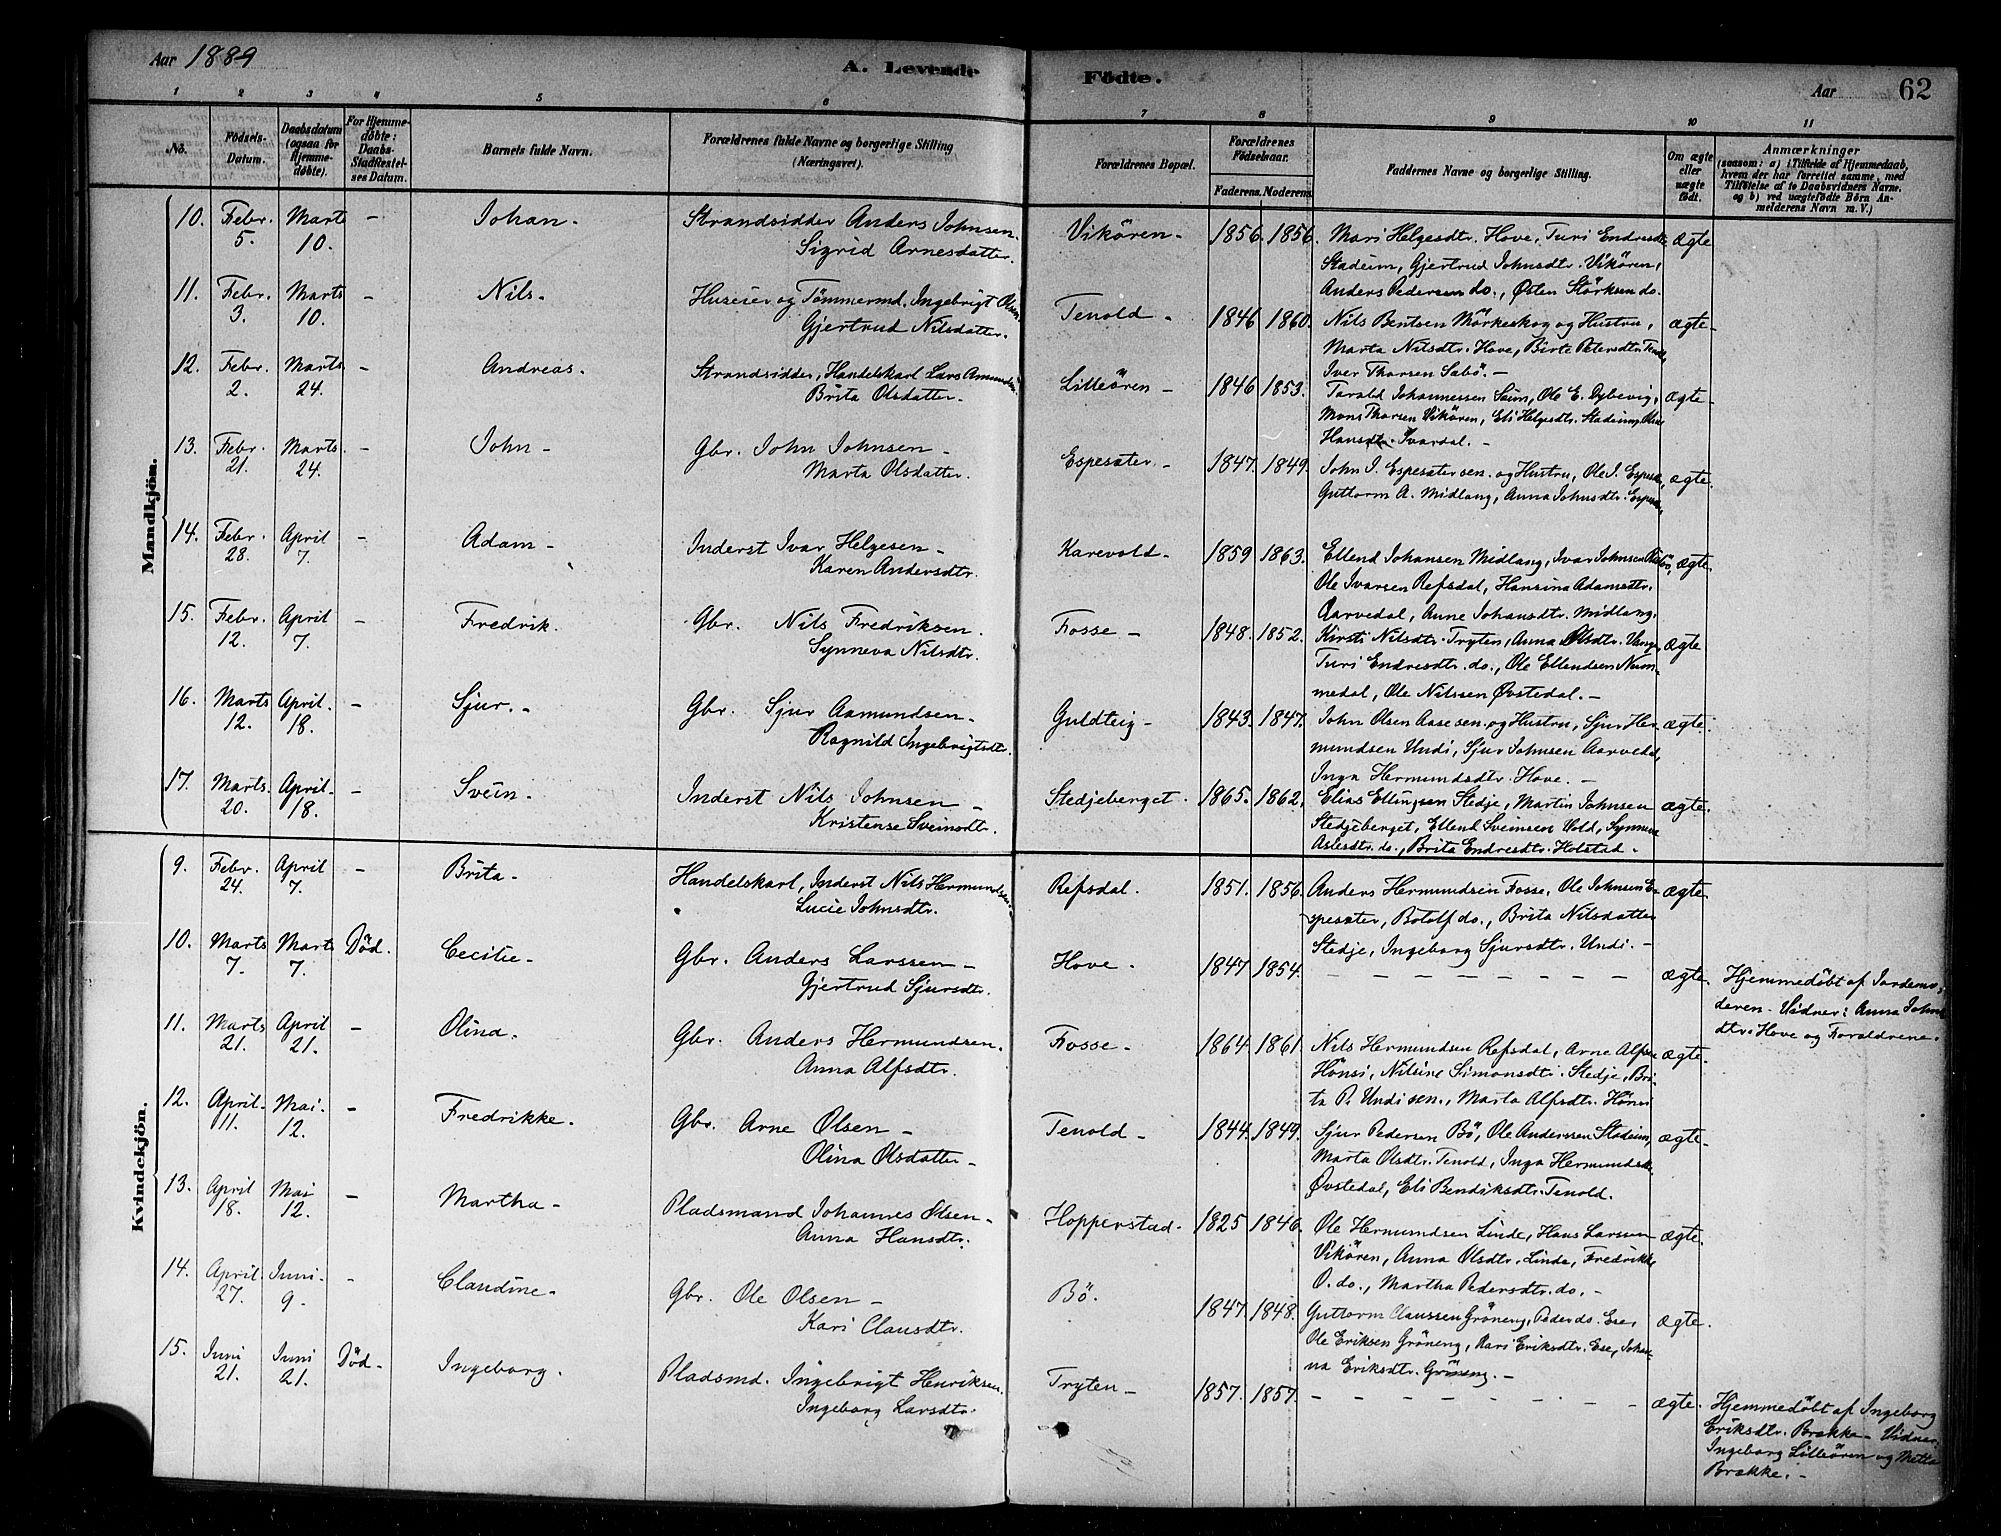 Aar 1889
A. Levende Födte.
Aar 62
1 2 3 4 5 6 7 8 9 10 11
No. Födsels-Datum. Daabsdatum (ogsaa for Hjemmedöbte). For Hjemmedöbte: Daabs-Stadfæstelses Datum. Barnets fulde Navn. Forældrenes fulde Navne og borgerlige Stilling (Næringsvei). Forældrenes Bopæl. Forældrenes Födselsaar. Faderens. Moderens. Faddernes Navne og borgerlige Stilling. Om ægte eller uægte födt. Anmærkninger (saasom: a) i Tilfælde af Hjemmedaab, hvem der har forrettet samme, med Tilföielse af to Daabsvidners Navne. og b) ved uægtefödte Börn Anmelderens Navn m. V.)
Mandkjön.
10. Febr. 5. Marts 10. - Johan. Strandsidder Anders Johnsen. Vikören. 1856. 1856. Mari Helgesdtr. Hove, Turi Endresdtr. ægte
Sigrid Arnesdatter. Stadeim, Gjertrud Johnsdtr. Vikören,
Anders Pedersen do., Østen Störksen do.
11. Febr. 3. Marts 10. - Nils. Huseier og Tömmermd. Ingebrigt Olsen. Tenold. 1846 1860. Nils Bentsen Mörkeskog og Hustru, ægte.
Gjertrud Nilsdatter. Marta Nilsdtr. Hove, Birte Petersdtr. Tenold,
Iver Thorsen Sæbö. -
12. Febr. 2. Marts 24. - Andreas. Strandsidder, Handelskarl Lars Amundsen Lilleören - 1846 1853. Tarald Johannessen Seim, Ole E. Dybevig, ægte.
Brita Olsdatter. Mons Thorsen Vikören, Eli Helgesdtr. Stadeim,
Hansdtr. Ivardal. -
13. Febr. 21. Marts 24. - John - Gbr. John Johnsen - Espesæter. - 1847. 1849. John I. Espesæter sen. og Hustru, Ole I. Espesæ, ægte.
Marta Olsdatter. Guttorm A. Midlang, Anna Johnsdtr. Espesæ,
14. Febr. 28. April 7. - Adam - Inderst Ivar Helgesen - Karevold. 1859 1863. Ellend Johansen Midlang, Ivar Johnsen ægte.
Karen Andersdtr. Ole Ivarsen Refsdal, Hansina Adamsdtr.
Aarvedal, Anne Johansdtr. Midlang.
15. Febr. 12. April 7. - Fredrik. Gbr. Nils Fredriksen. Fosse - 1848. 1852. Kirsti Nilsdtr. Tryten, Anna Olsdtr. Vange, ægte
Synneva Nilsdtr. Turi Endresdtr. do., Ole Ellendsen Num-
medal, Ole Nilssen Øvstedal. -
16. Marts 12. April 18. - Sjur. - Gbr. Sjur Aamundsen - Guldteig - 1843. 1847. John Olsen Aase sen. og Hustru, Sjur Her- ægte.
Ragnild Ingebrigtsdtr. mundsen Undi, Sjur Johnsen Aarvedal,
Inga Hermundsdtr. Hove. -
17. Marts. 20. April. 18. - Svein. Inderst Nils Johnsen - Stedjeberget. 1865. 1862. Elias Ellingsen Stedje, Martin Johnsen ægte.
Kristense Sveinsdtr. Stedjeberget, Ellend Sveinsen Vold, Synneva
Aslesdtr. do., Brita Endresdtr. Holstad.
Kvindekjön.
9. Febr. 24. April 7. - Brita. Handelskarl, Inderst Nils Hermundsen. Refsdal. 1851. 1856. Anders Hermundsen Fosse, Ole Johnsen Es- ægte.
Lucie Johnsdtr. pesæter, Botolf do., Brita Nilsdatter
Stedje, Ingeborg Sjursdtr. Undi. -
10. Marts 7. Marts 7. Död. Cecilie. Gbr. Anders Larssen - Hove. 1847 1854. - - - - - - - - ægte. Hjemmedöbt af Jordemo-
Gjertrud Sjursdtr. deren. Vidner: Anna Johns-
dtr. Hove og Forældrene.
11. Marts 21. April 21. - Olina. Gbr. Anders Hermundsen. Fosse - 1864. 1861. Nils Hermundsen Refsdal, Arne Alfsen ægte.
Anna Alfsdtr. Hönsi, Nilsine Simonsdtr. Stedje, Bri-
ta P. Undi sen., Marta Alfsdtr. Hönsi
12. April. 11. Mai. 12. - Fredrikke. Gbr. Arne Olsen - Tenold - 1844. 1849. Sjur Pedersen Bö, Ole Anderssen Stadeim, ægte.
Olina Olsdatter - Marta Olsdtr. Tenold, Inga Hermundsdtr.
Øvstedal, Eli Bendiksdtr. Tenold.
13. April 18. Mai 12. - Martha - Pladsmand Johannes Olsen - Hopperstad. 1825 1846. Ole Hermundsen Linde, Hans Larssen ægte.
Anna Hansdtr. Vikören, Anna Olsdtr. Linde, Fredrikke
O. do., Martha Pedersdtr. do. -
14. April. 27. Juni 9. - Claudine - Gbr. Ole Olsen - Bö. 1847. 1848. Guttorm Claussen Gröneng, Peder do. Ese, ægte.
Kari Clausdtr. Ole Eriksen Gröneng, Kari Eriksdtr. Ese, Johan-
na Eriksdtr. Gröneng. -
15. Juni 21. Juni 21. Död - Ingeborg. Pladsmd. Ingebrigt Henriksen. Tryten - 1857. 1857. - - - - - - - ægte. Hjemmedöbt af Ingeborg
Ingeborg Larsdtr. Eriksdtr. Brække - Vidner:
Ingeborg Lilleören og Metta
Brække. -